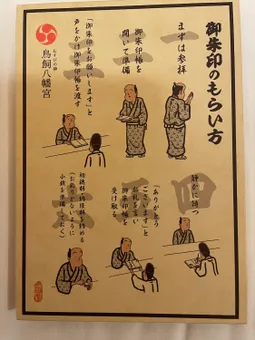 御朱印のもらい方
一
まずは参拝
二
御朱印帳を
開いて準備
三
「御朱印をお願いします」と
声をかけ御朱印帳を渡す
鳥飼八幡宮
四
静かに待つ
五
「ありがとう
ございます」と
お礼を言い
御朱印帳を
受け取る
六
初穂料（納経料）を納める